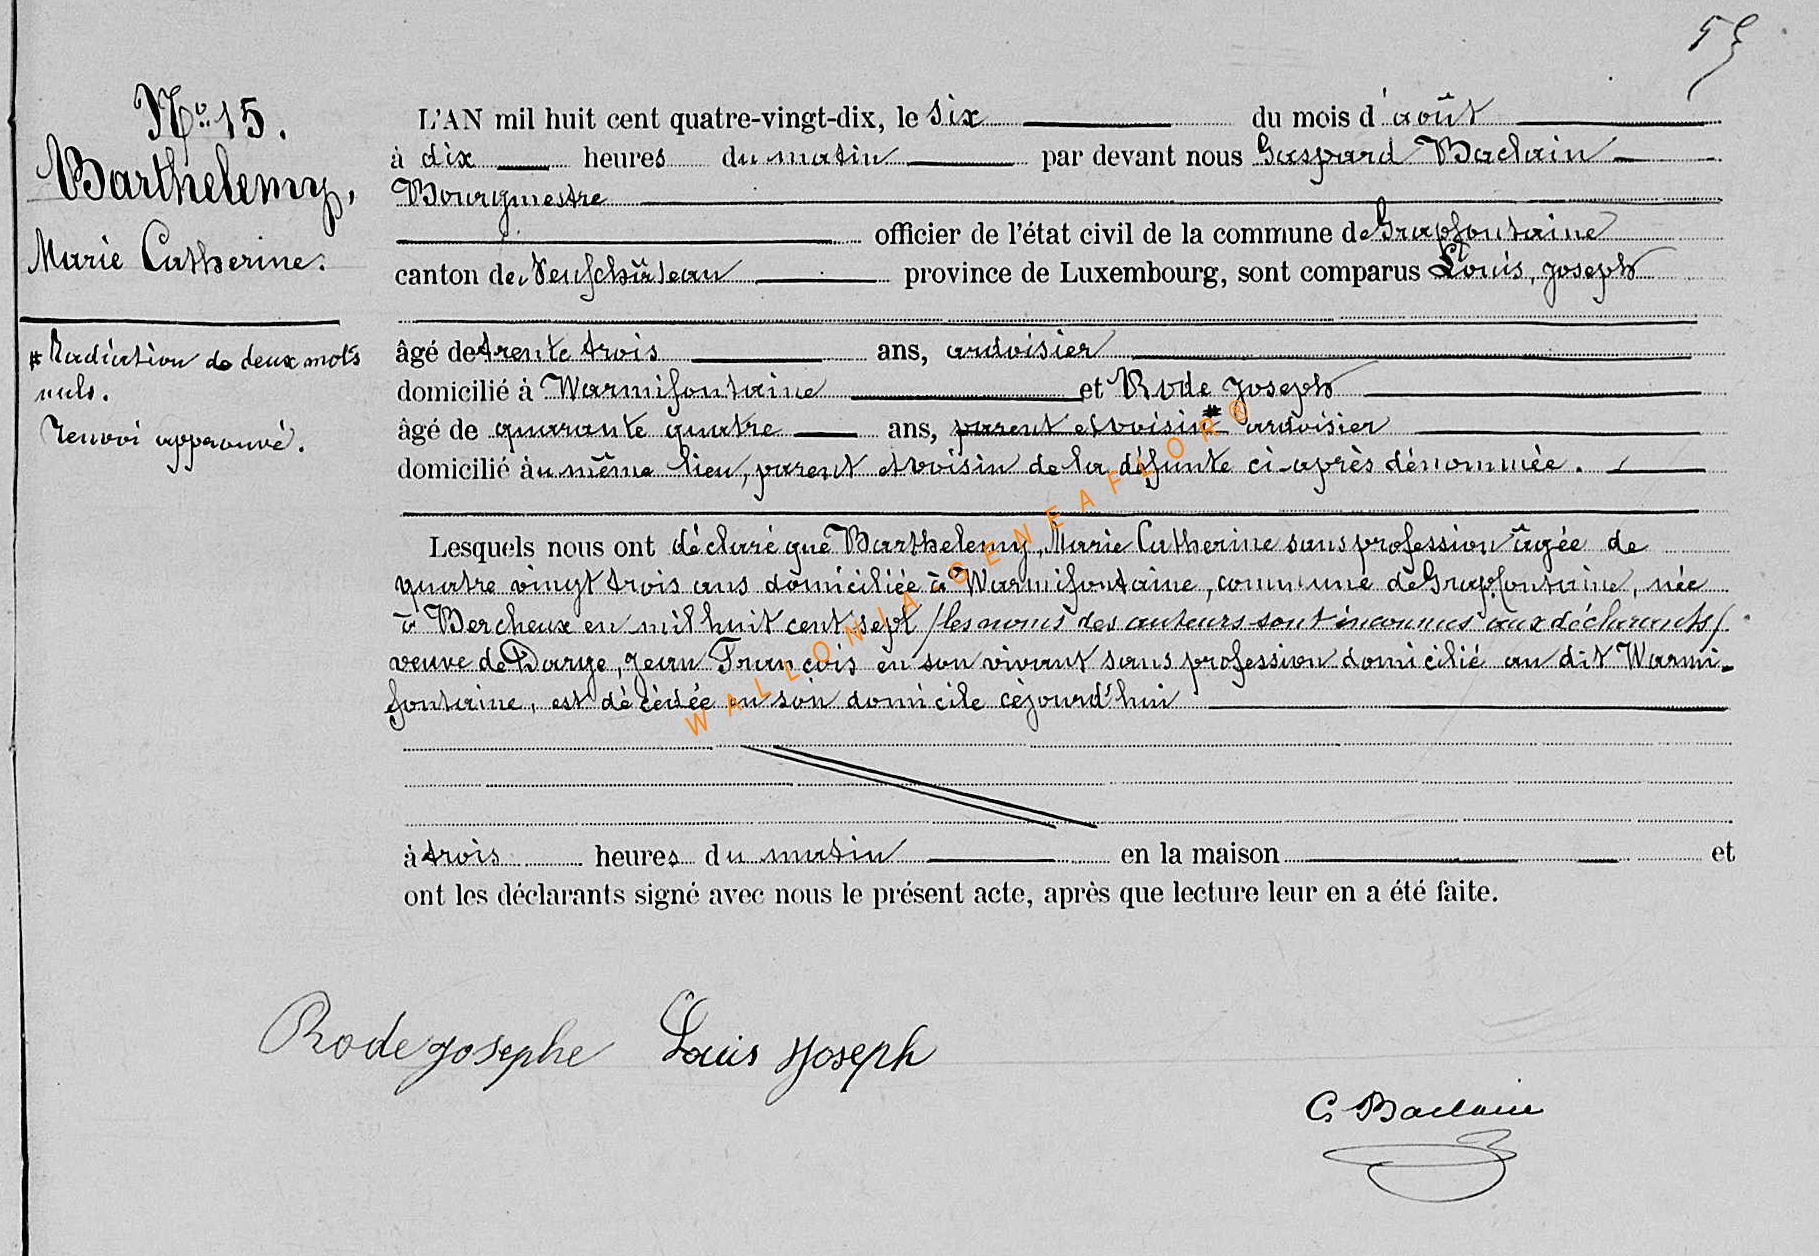 Nº 15.
Barthelemy,
Marie Catherine.
# Radiation de deux mots
nuls.
Renvoi approuvé.
L'AN mil huit cent quatre-vingt-dix, le six du mois d'août
à dix heures du matin par devant nous Gaspard Baclain
Bourgmestre
officier de l'état civil de la commune de Grapfontaine
canton de Neufchâteau province de Luxembourg, sont comparus Louis, Joseph
âgé de trente trois ans, ardoisier
domicilié à Warmifontaine et Rode Joseph
âgé de quarante quatre ans, parent et voisin # ardoisier
domicilié au même lieu, parent et voisin de la défunte ci-après dénommée.
Lesquels nous ont déclaré que Barthelemy, Marie Catherine sans profession âgée de
quatre vingt trois ans domiciliée à Warmifontaine, commune de Grapfontaine, née
à Bercheux en mil huit cent sept / les noms des auteurs sont inconnus aux déclarants /
veuve de Darge, Jean François en son vivant sans profession domicilié au dit Warmi-
fontaine, est décédée en son domicile cejourd'hui
à trois heures du matin en la maison et
ont les déclarants signé avec nous le présent acte, après que lecture leur en a été faite.
Rode Josephe Louis Joseph
G. Baclain
WALLONIA GENEAFLOR®